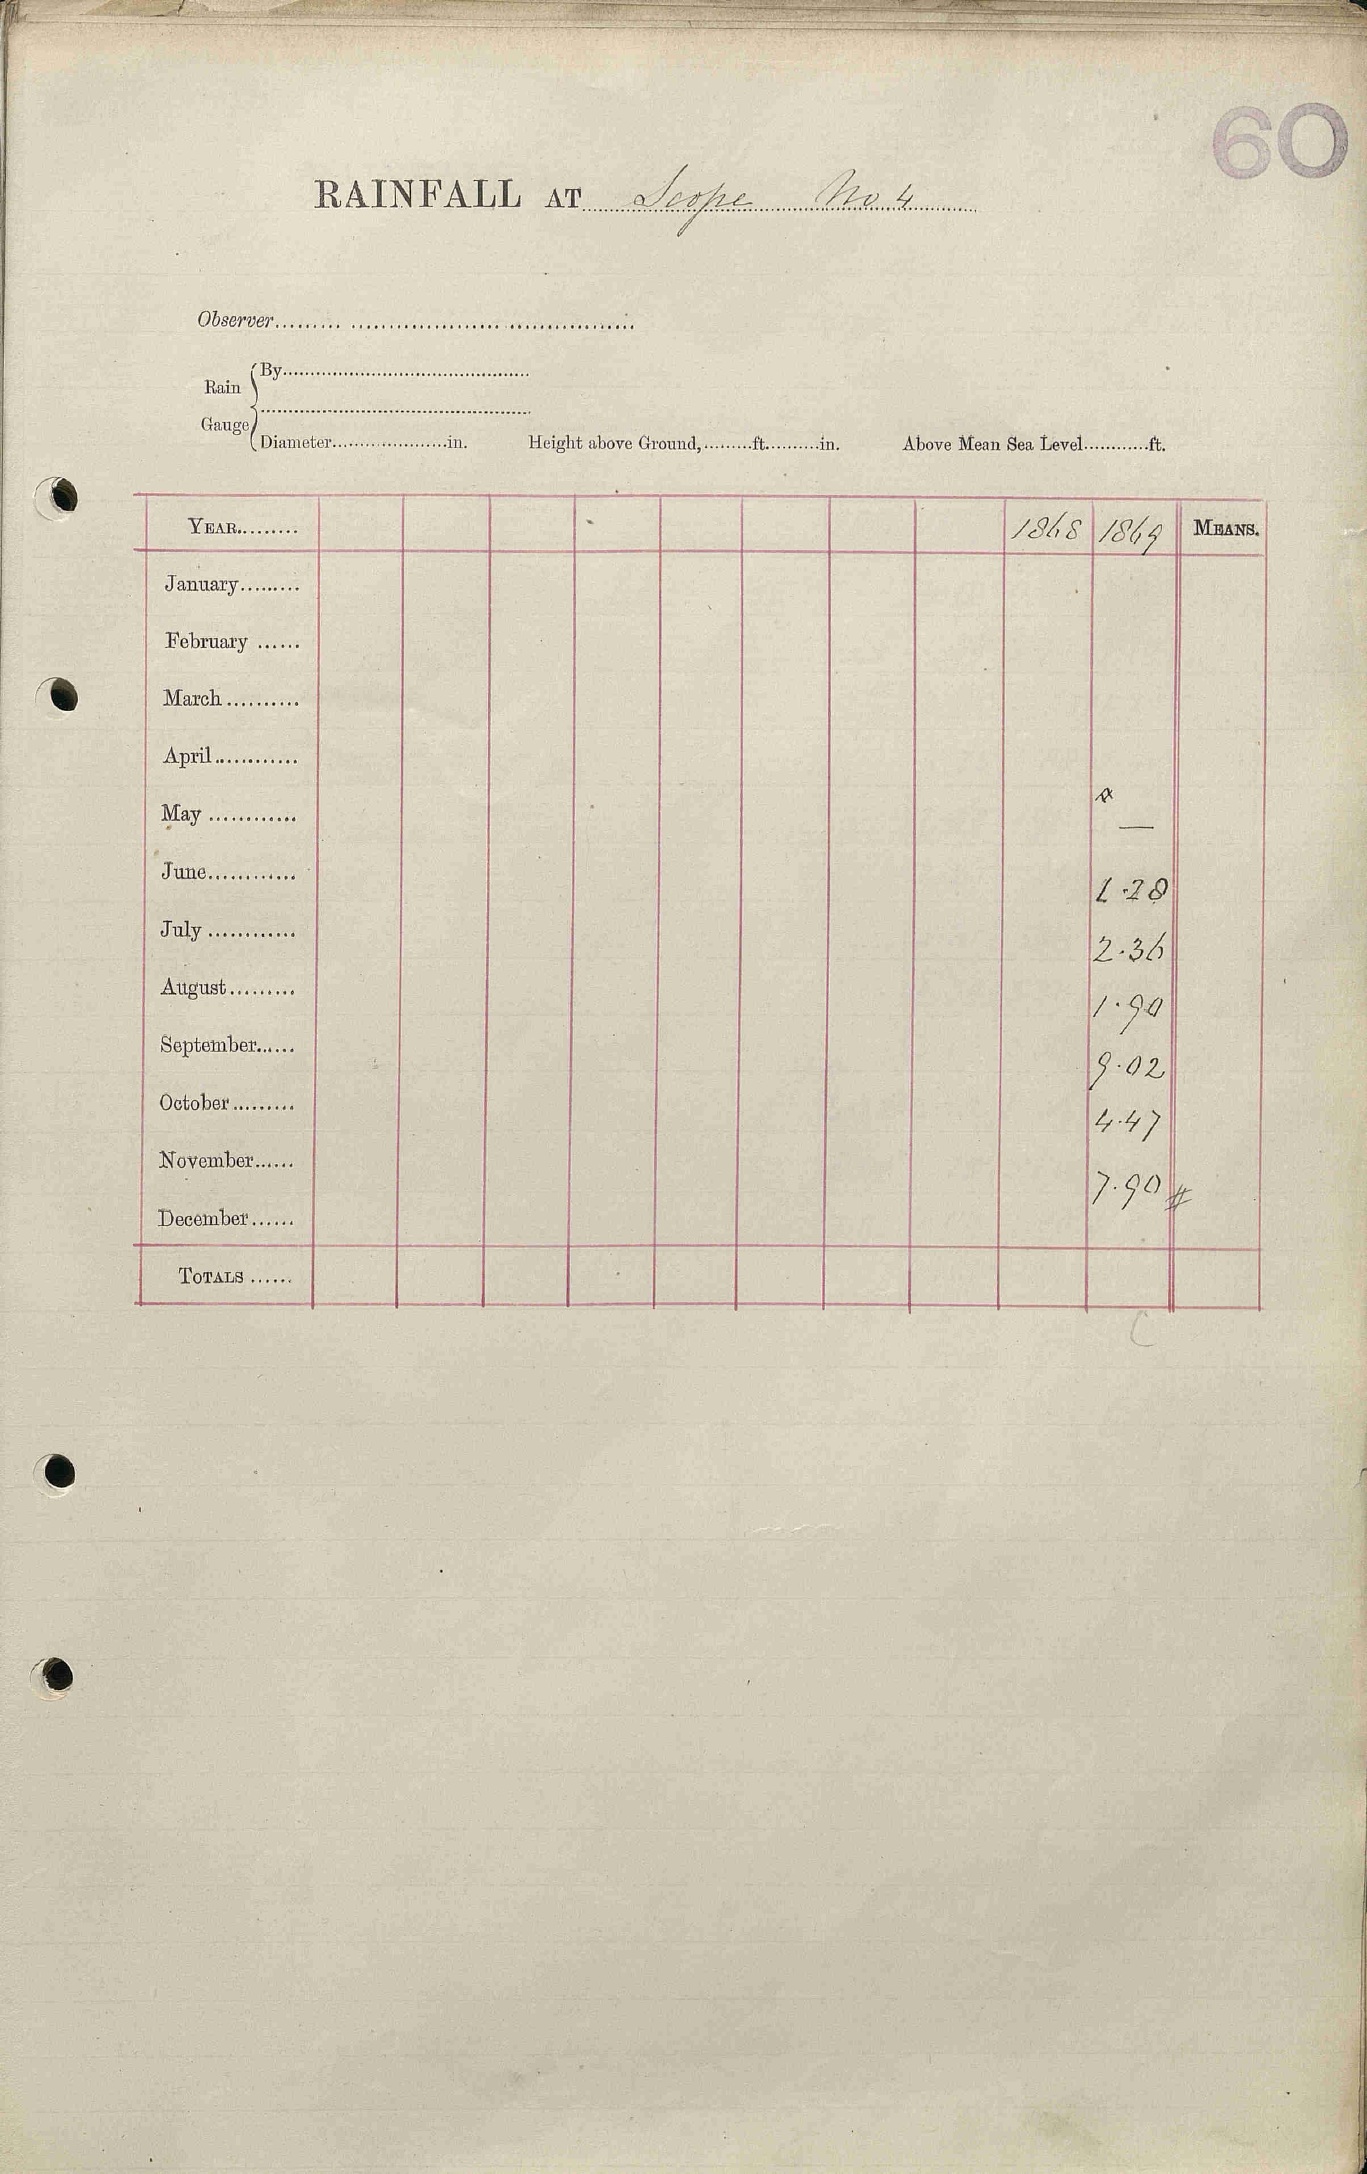 60
RAINFALL AT Scope No 4
Observer
Rain Gauge { By
Diameter in. Height above Ground, ft. in. Above Mean Sea Level ft.
YEAR 1868 1869 MEANS.
January
February
March
April
May —
June 1.28
July 2.36
August 1.90
September 9.02
October 4.47
November 7.90 #
December
TOTALS
C